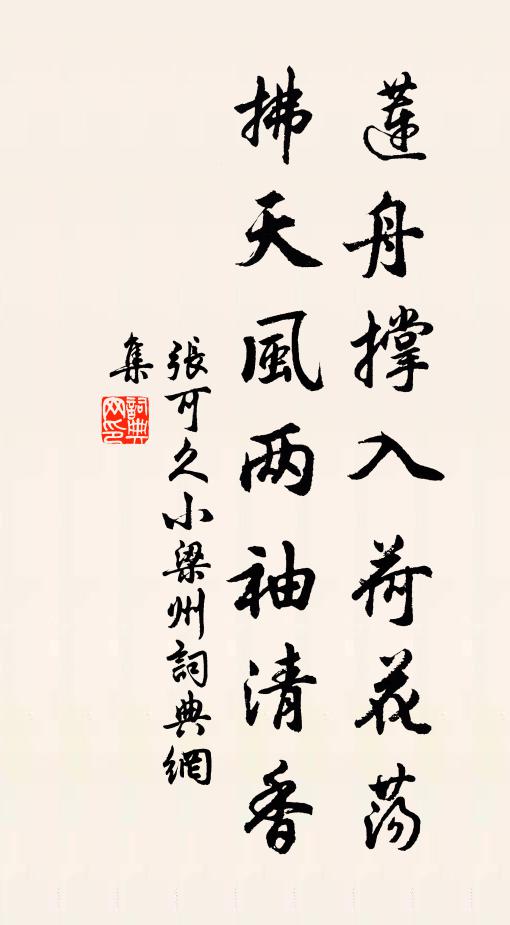 蓮舟撐入荷花荡
拂天風两袖清香
張可久小梁州詞典網
集
詞典
网印